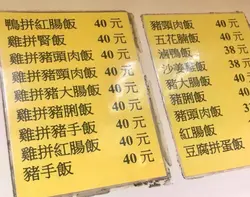 鴨拼紅腸飯 40元
雞拼腎飯 40元
雞拼豬頭肉飯 40元
雞拼豬頸肉飯 40元
雞拼豬大腸飯 40元
雞拼豬脷飯 40元
雞拼豬手飯 40元
雞拼紅腸飯 40元
豬手飯 40元
豬頸肉飯 40元
五花腩飯 40元
滷鴨飯 38元
沙姜豬 38
豬大腸飯
豬脷飯
豬頭肉飯
紅腸飯
豆腐拼蛋飯